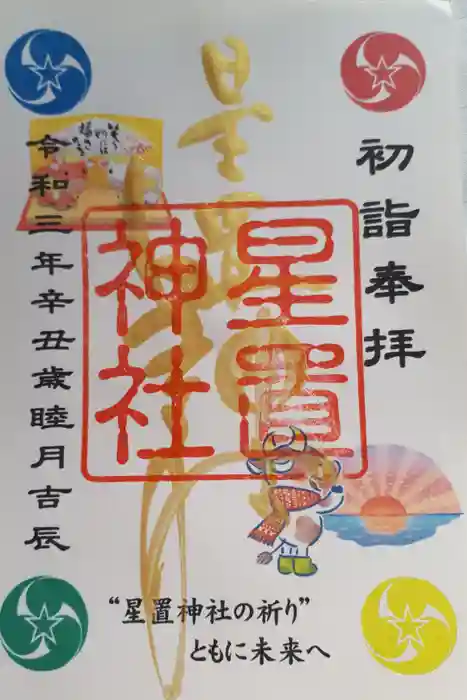 初詣奉拝
星置神社
星置
神社
令和三年辛丑歳睦月吉辰
“星置神社の祈り”
ともに未来へ